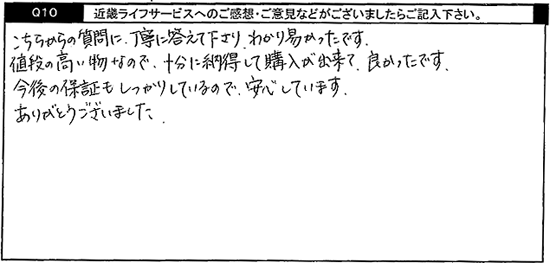 Q10 近畿ライフサービスへのご感想・ご意見などがございましたらご記入下さい。
こちらからの質問に、丁寧に答えて下さり、わかり易かったです。
値段の高い物なので、十分に納得して購入が出来て、良かったです。
今後の保証もしっかりしているので、安心しています。
ありがとうございました。